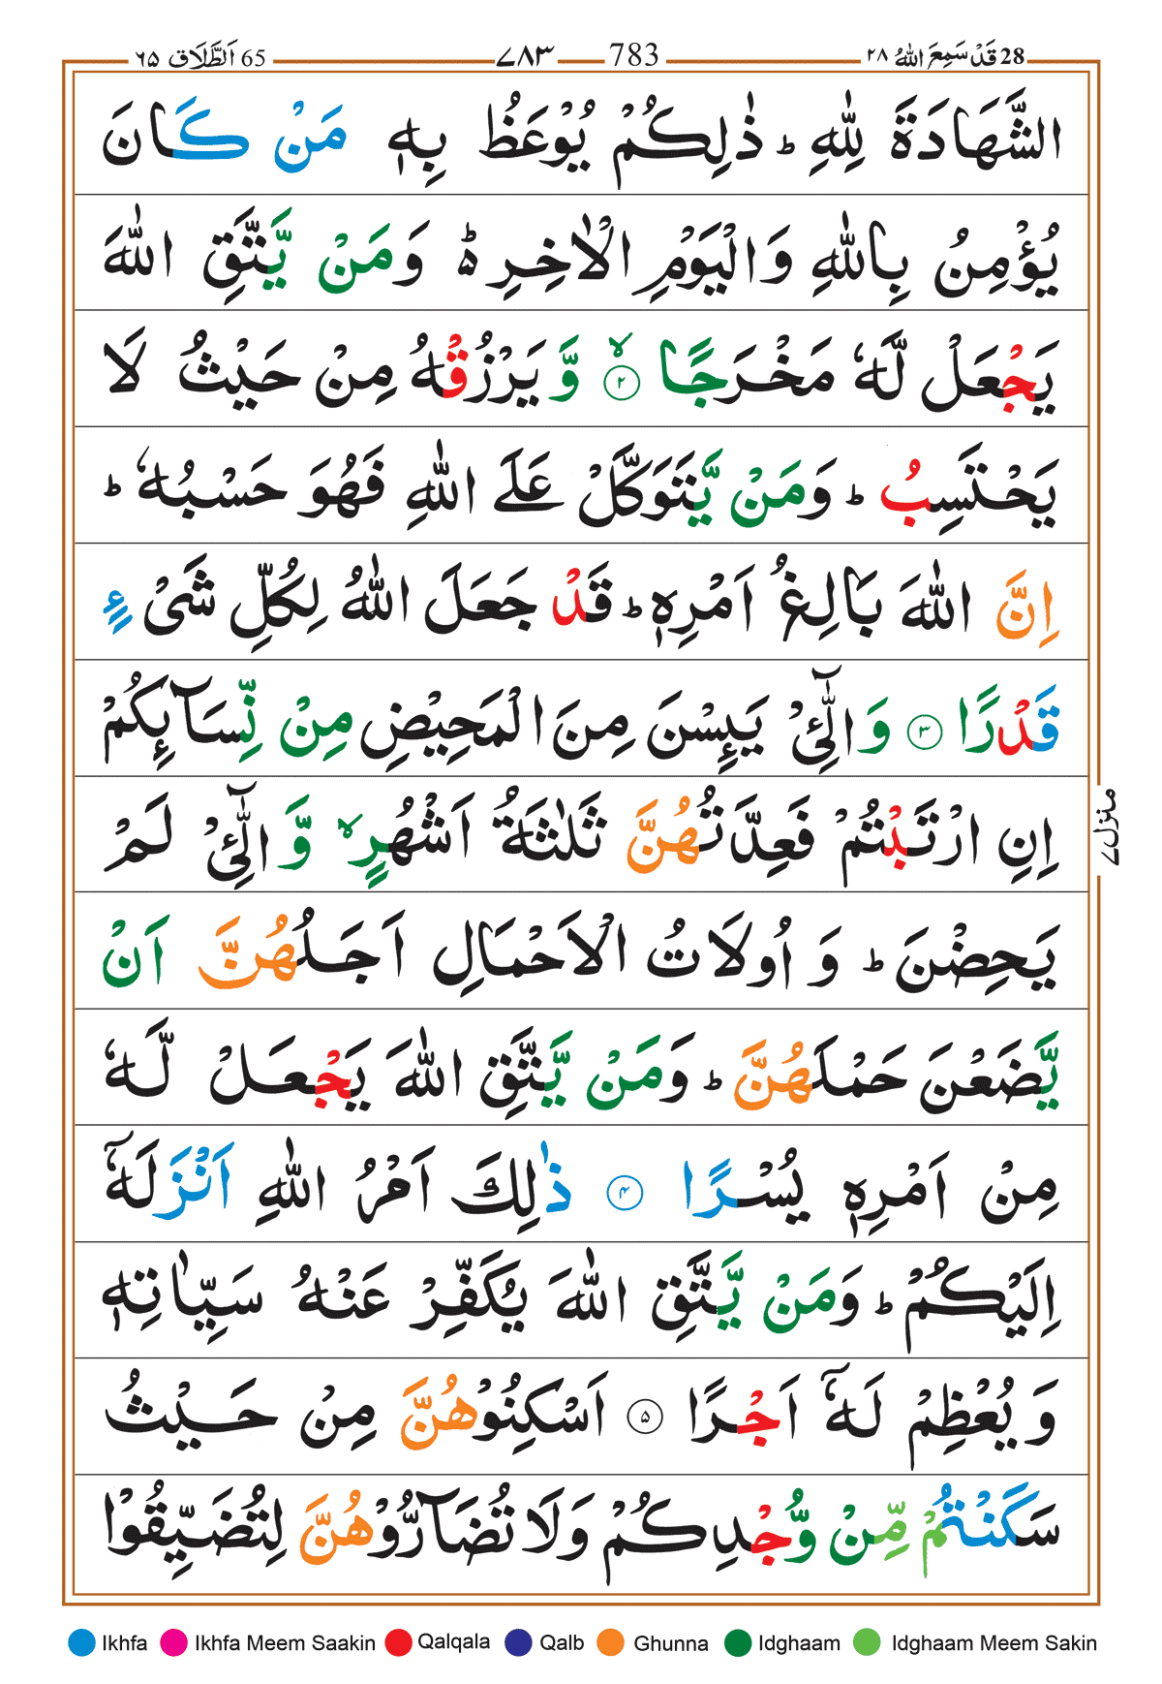 65 اَلطَّلَاق ٦٥ ٧٨٣ 783 28 قَدْ سَمِعَ اللّٰهُ ٢٨
الشَّهَادَةَ لِلّٰهِ ؕ ذٰلِكُمْ يُوْعَظُ بِهٖ مَنْ كَانَ
يُؤْمِنُ بِاللّٰهِ وَالْيَوْمِ الْاٰخِرِ ۬ؕ وَمَنْ يَّتَّقِ اللّٰهَ
يَجْعَلْ لَّهٗ مَخْرَجًا ۙ﴿۲﴾ وَّيَرْزُقْهُ مِنْ حَيْثُ لَا
يَحْتَسِبُ ؕ وَمَنْ يَّتَوَكَّلْ عَلَي اللّٰهِ فَهُوَ حَسْبُهٗ ؕ
اِنَّ اللّٰهَ بَالِغُ اَمْرِهٖ ؕ قَدْ جَعَلَ اللّٰهُ لِكُلِّ شَىْءٍ
قَدْرًا ﴿۳﴾ وَالّٰٓئِيْ يَىِٕسْنَ مِنَ الْمَحِيْضِ مِنْ نِّسَآىِٕكُمْ
اِنِ ارْتَبْتُمْ فَعِدَّتُهُنَّ ثَلٰثَةُ اَشْهُرٍ ۙ وَّالّٰٓئِيْ لَمْ
يَحِضْنَ ؕ وَاُولَاتُ الْاَحْمَالِ اَجَلُهُنَّ اَنْ
يَّضَعْنَ حَمْلَهُنَّ ؕ وَمَنْ يَّتَّقِ اللّٰهَ يَجْعَلْ لَّهٗ
مِنْ اَمْرِهٖ يُسْرًا ﴿۴﴾ ذٰلِكَ اَمْرُ اللّٰهِ اَنْزَلَهٗۤ
اِلَيْكُمْ ؕ وَمَنْ يَّتَّقِ اللّٰهَ يُكَفِّرْ عَنْهُ سَيِّاٰتِهٖ
وَيُعْظِمْ لَهٗۤ اَجْرًا ﴿۵﴾ اَسْكِنُوْهُنَّ مِنْ حَيْثُ
سَكَنْتُمْ مِّنْ وُّجْدِكُمْ وَلَا تُضَآرُّوْهُنَّ لِتُضَيِّقُوْا
منزل ٧
Ikhfa Ikhfa Meem Saakin Qalqala Qalb Ghunna Idghaam Idghaam Meem Sakin